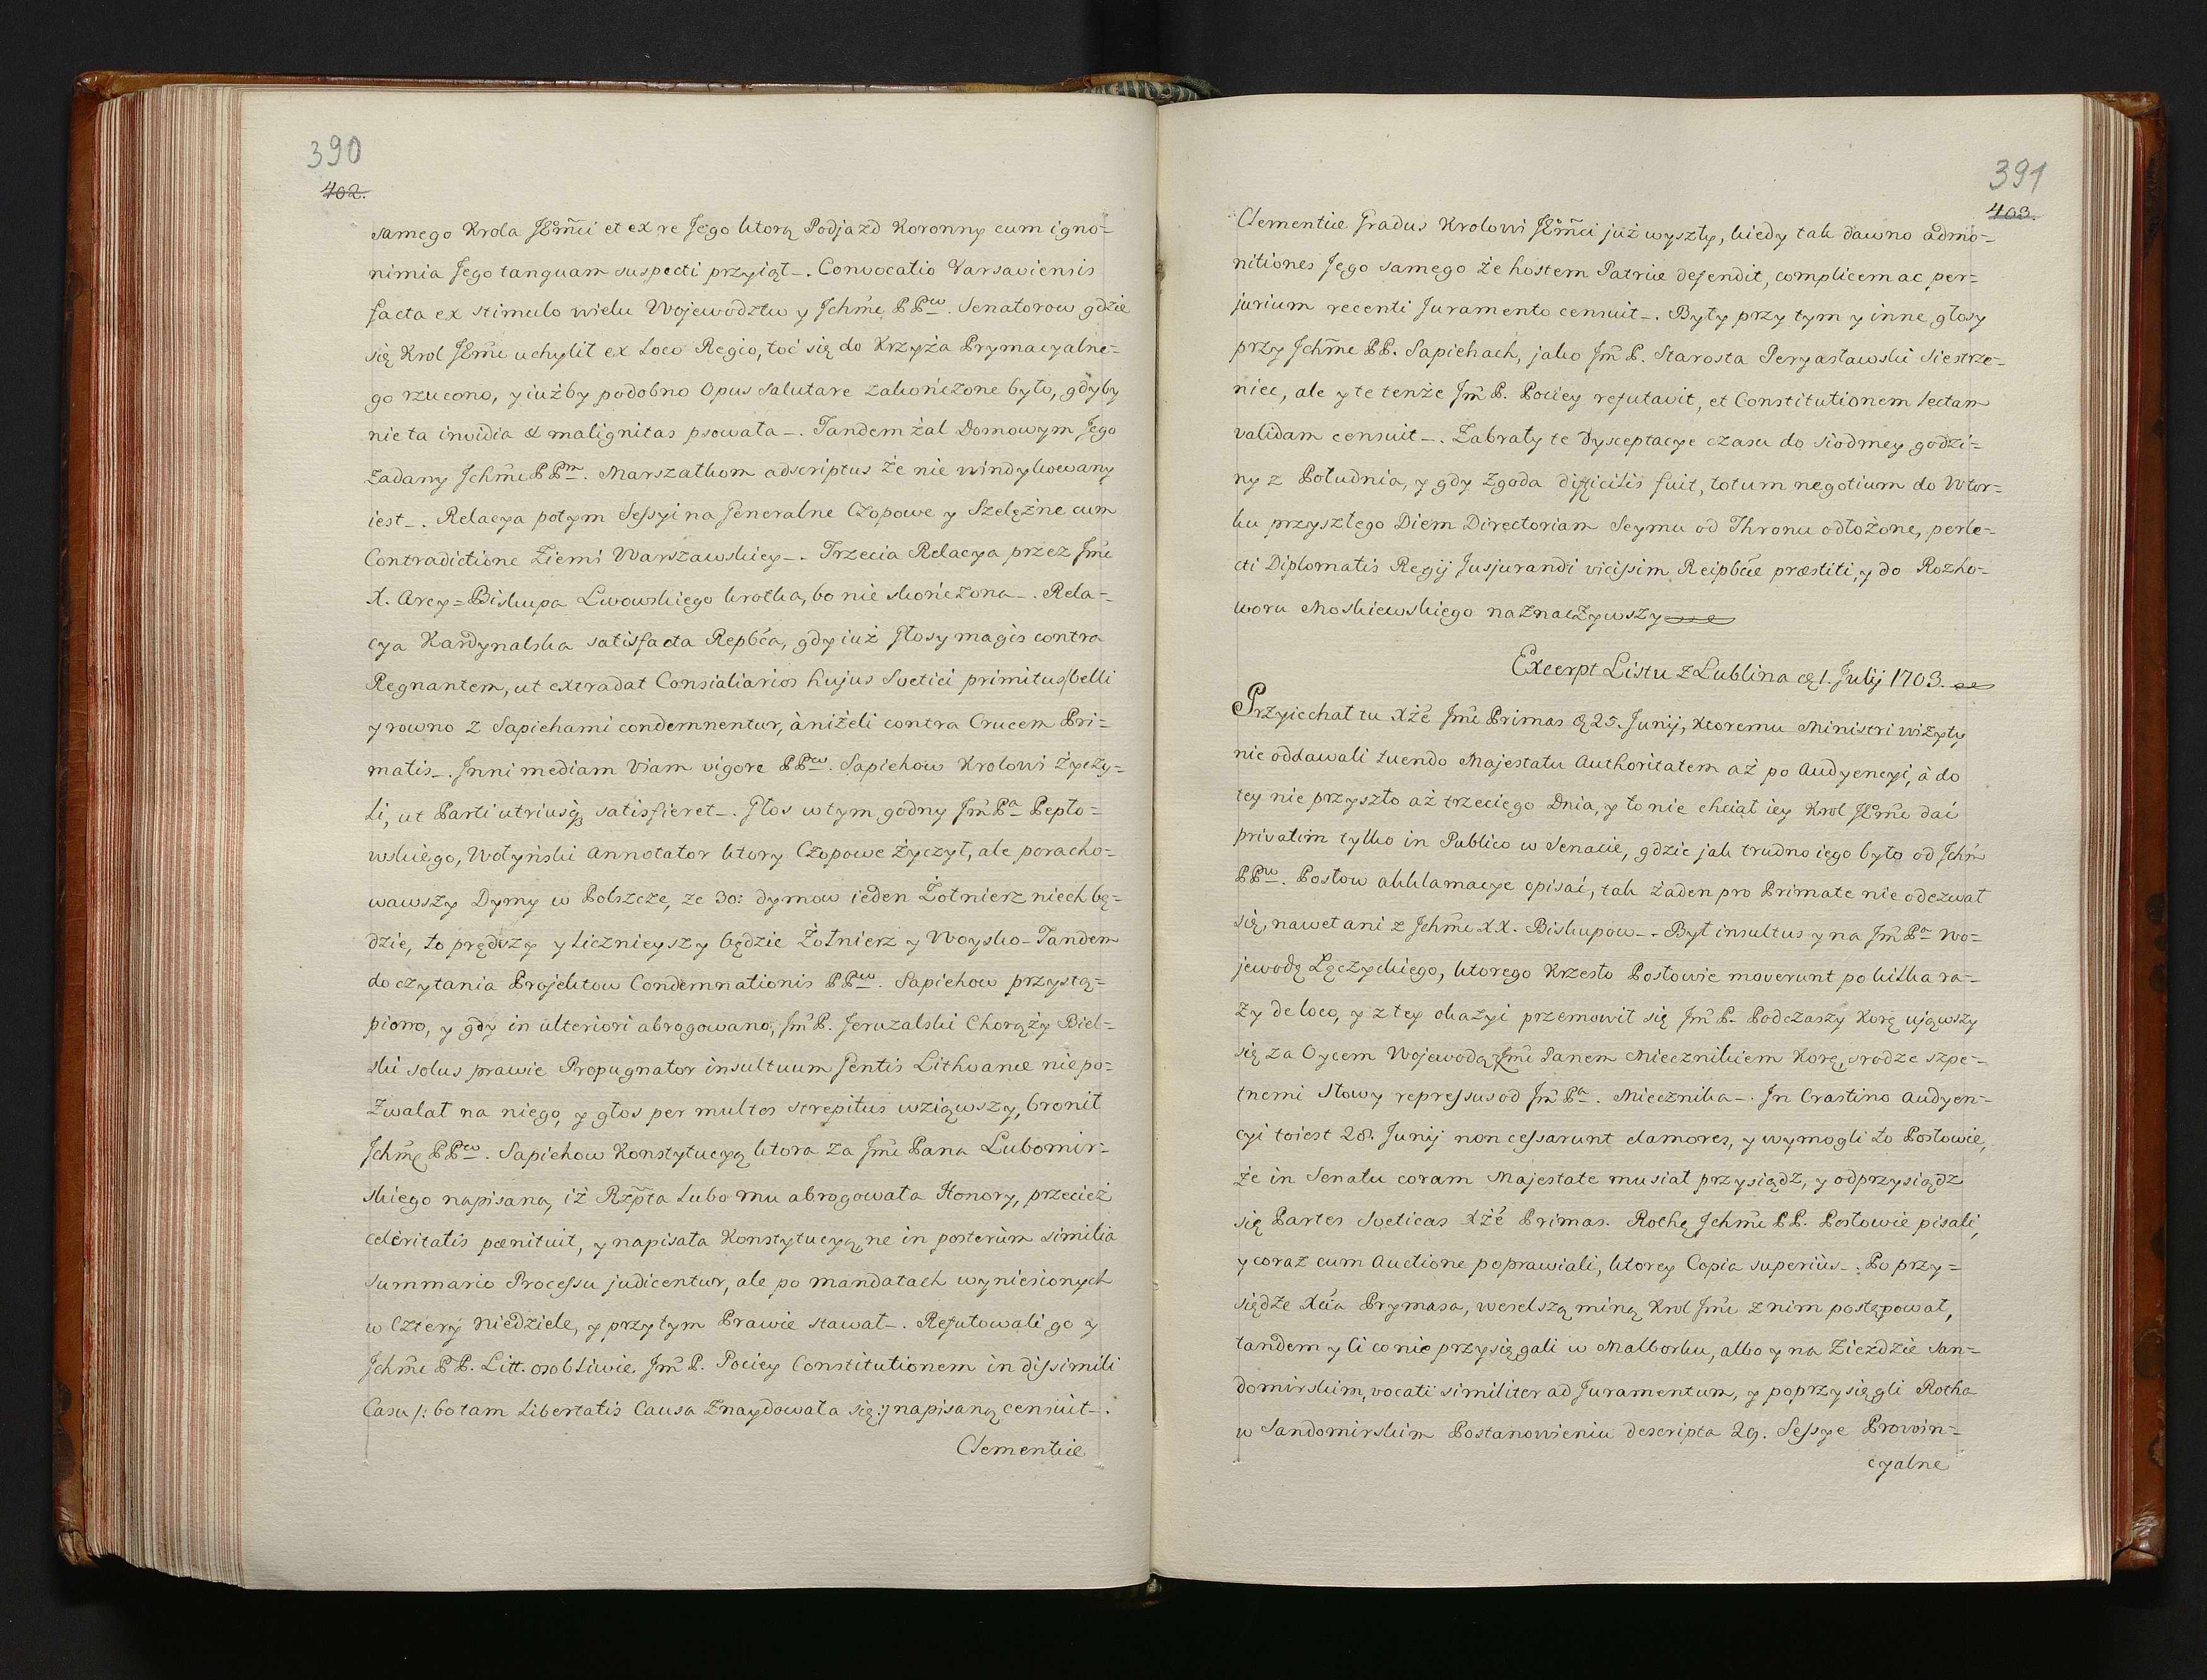 390
402.
samego Krola JEm̃ci et ex re Jego ktorą Podjazd Koronny cum igno=
nimia Jego tanquam suspecti przyiąt_. Convocatio Varsaviensis
facta ex stimulo wielu Wojewodztw y Jchm̃c PPʷ. Senatorow gdzie
się Krol JEm̃c uchylił ex Loco Regio, toć się do Krzyża Prymacyalne=
go rzucono, y iużby podobno Opus Salutare zakończone było, gdyby
nie ta invidia & malignitas psowała_. Tandem żal Domowym Jego
zadany Jchm̃c PPᵐ. Marszałkom adscriptus że nie windykowany
iest_. Relacya potym Sessyi na Generalne Czopowe y Szelężne cum
Contradictione Ziemi Warszawskiey_. Trzecia Relacya przez Jm̃c
X. Arcy=Biskupa Lwowskiego krotka, bo nie skończona_. Rela=
cya Kardynalska satisfacta Repb̃ca, gdy iuż Głosy magis contra
Regnantem, ut extradat Consialiarios hujus Svetici primitus belli
y rowno z Sapiehami condemnentur, àniżeli contra Crucem Pri=
matis_. Jnni mediam Viam vigore PPʷ. Sapiehow Krolowi życzy=
li, ut Parti utriusq; satisfieret_. Głos w tym godny Jm̃ Pᵃ Pepło=
wskiego, Wołyński Annotator ktory Czopowe życzył, ale poracho=
wawszy Dymy w Polszcze, ze 30: dymow ieden Żołnierz niech bę=
dzie, to prędszy y Licznieyszy będzie Żołnierz y Woysko_ Tandem
do czytania Projektow Condemnationis PPʷ. Sapiehow przystą=
piono, y gdy in ulteriori abrogowano, Jm̃ P. Jeruzalski Chorąży Biel=
ski solus prawie Propugnator insultuum Gentis Lithvanæ nie po=
zwalał na niego, y głos per multos strepitus wziąwszy, bronił
Jchm̃ę PPʷ. Sapiehow Konstytucyą ktora za Jm̃c Pana Lubomir=
skiego napisaną, iż Rzp̃ta Lubo mu abrogowała Honory, przecież
celeritatis pænituit, y napisała Konstytucyą, ne in posterùm similia
summario Processu judicentur, ale po mandatach wyniesionych
w Cztery Niedziele, y przytym Prawie stawał_. Refutowali go y
Jchm̃c PP. Litt. osobliwie Jm̃ P. Pociey Constitutionem in dissimili
Casu /: bo tam Libertatis Causa Znaydowała się:/ napisaną censuit_.
Clementiæ
391
403.
Clementiæ Gradus Krolowi JEm̃ci już wyszły, kiedy tak dawno admo=
nitiones Jego samego że hostem Patriæ defendit, complicem ac per=
jurium recenti Juramento censuit_. Były przy tym y inne głosy
przy Jchm̃c PP. Sapiehach, jako Jm̃ P. Starosta Peryasławski Siestrze=
niec, ale y te tenże Jm̃ P. Pociey refutavit, et Constitutionem lectam
validam censuit_. Zabrały te Dysceptacye czasu do siodmey godzi=
ny z Południa, y gdy Zgoda difficilis fuit, totum negotium do Wtor=
ku przyszłego Diem Directoriam Seymu od Thronu odłożone, perle=
cti Diplomatis Regij Jusjurandi vicissim Reipb̃cæ præstiti, y do Rozho=
woru Moskiewskiego naznaczywszy
Excerpt Listu z Lublina dę 1. Julij 1703.
Przyiechał tu Xże Jm̃c Primas dę 25. Junij, Ktoremu Ministri wizyty
nie oddawali tuendo Majestatu Authoritatem aż po Audyencyi, à do
tey nie przyszło aż trzeciego Dnia, y to nie chciał iey Krol JEm̃c dać
privatim tylko in Publico w Senacie, gdzie jak trudno iego było od Jchm̃
PPʷ. Posłow akklamacye opisać, tak żaden pro Primate nie odezwał
się, nawet ani z Jchm̃c XX. Biskupow_. Był insultus y na Jm̃ Pᵃ Wo=
jewodę Łęczyckiego, ktorego Krzesło Posłowie moverunt po kilka ra=
zy de loco, y z tey okazyi przemowił się Jm̃ P. Podczaszy Korę ująwszy
się za Oycem Wojewodą z Jm̃c Panem Miecznikiem Korę, srodze szpe=
tnemi Słowy repressus od Jm̃ Pᵃ. Miecznika_. Jn Crastino Audyen=
cyi toiest 28. Junij non cessarunt clamores, y wymogli to Posłowie,
że in Senatu coram Majestate musiał przysiądz, y odprzysiądz
się Partes Sveticas Xżé Primas. Rothę Jchm̃c PP. Posłowie pisali,
y coraz cum Auctione poprawiali, ktorey Copia superiùs_. Po przy=
siędze Xcia Prymasa, weselszą miną Krol Jm̃c z nim postępował,
tandem y Ci co nie przysięgali w Malborku, albo y na Zieździe San=
domirskim, vocati similiter ad Juramentum, y poprzysięgli Rotha
w Sandomirskim Postanowieniu descripta 29. Sessye Prowin=
cyalne